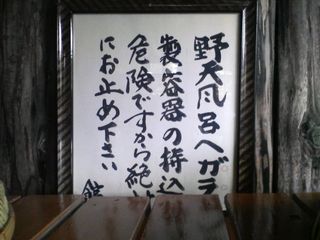 野天風呂へガラ
製容器の持込
危険ですから絶
にお止め下さい
館